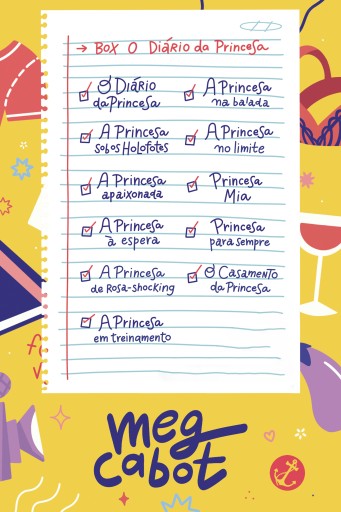 → Box O Diário da Princesa
O Diário
da Princesa
A Princesa
sob os Holofotes
A Princesa
apaixonada
A Princesa
à espera
A Princesa
de Rosa-shocking
A Princesa
em treinamento
A Princesa
na balada
A Princesa
no limite
Princesa
Mia
Princesa
para sempre
O Casamento
da Princesa
meg
cabot